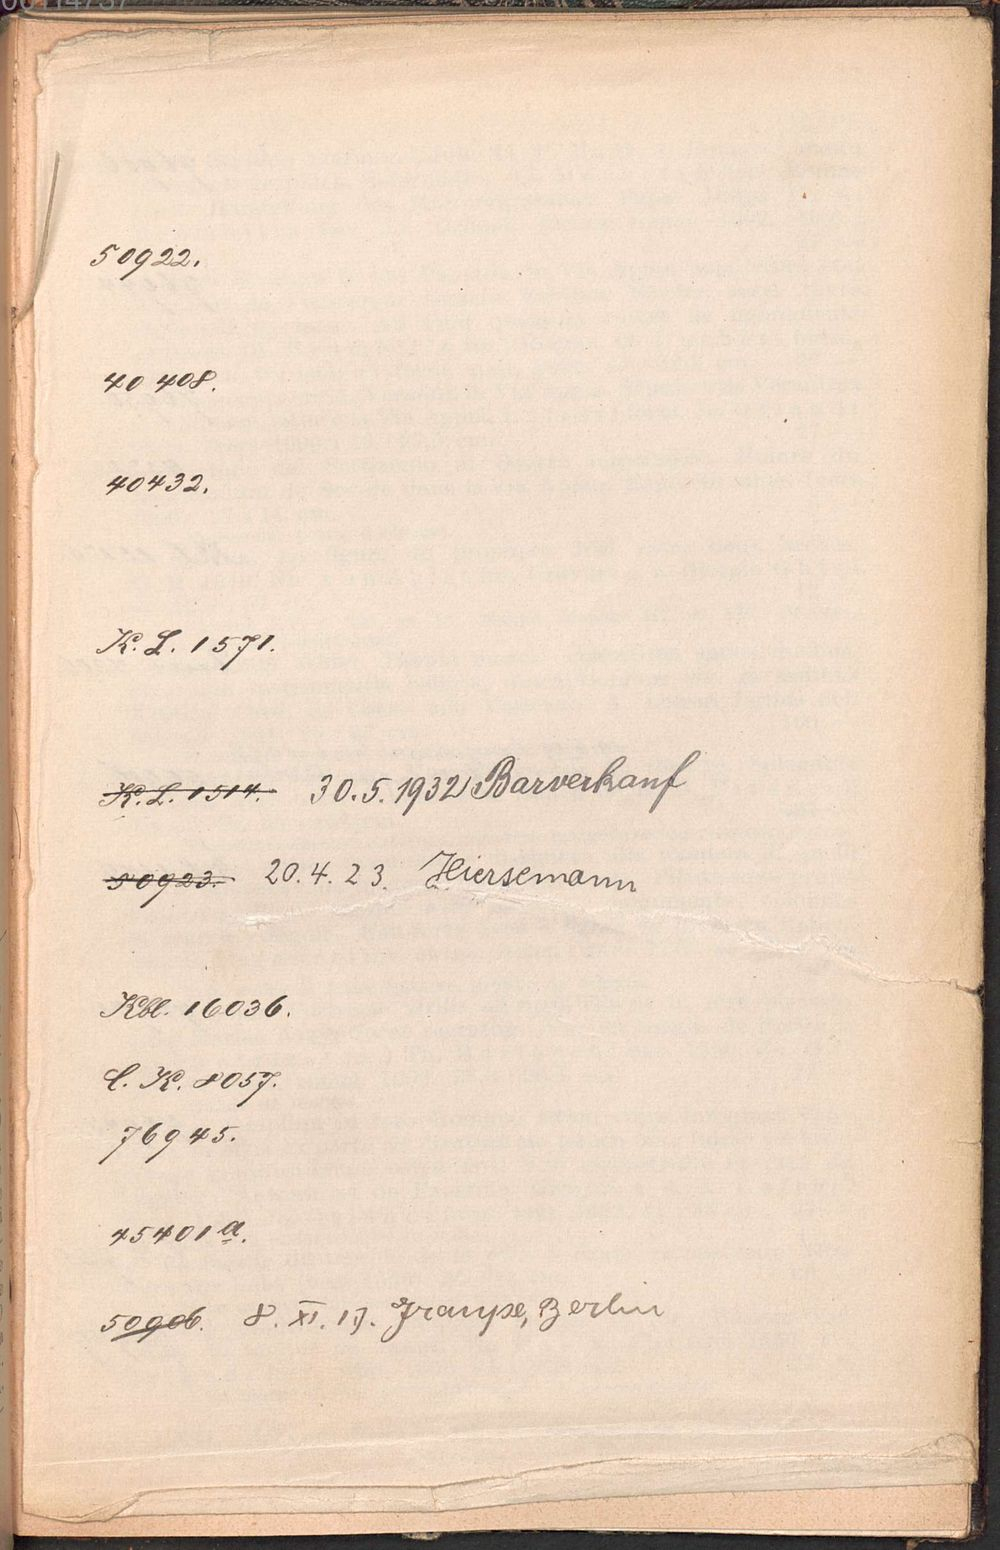 50922.
40408.
40432.
K. L. 1571.
K. L. 1514. 30.5.1932 Barverkauf
50923. 20.4.23. Hiersemann
Kbl. 16036.
C. K. 8057.
76945.
45401a.
50906. 8. XI. 17. Graupe, Berlin